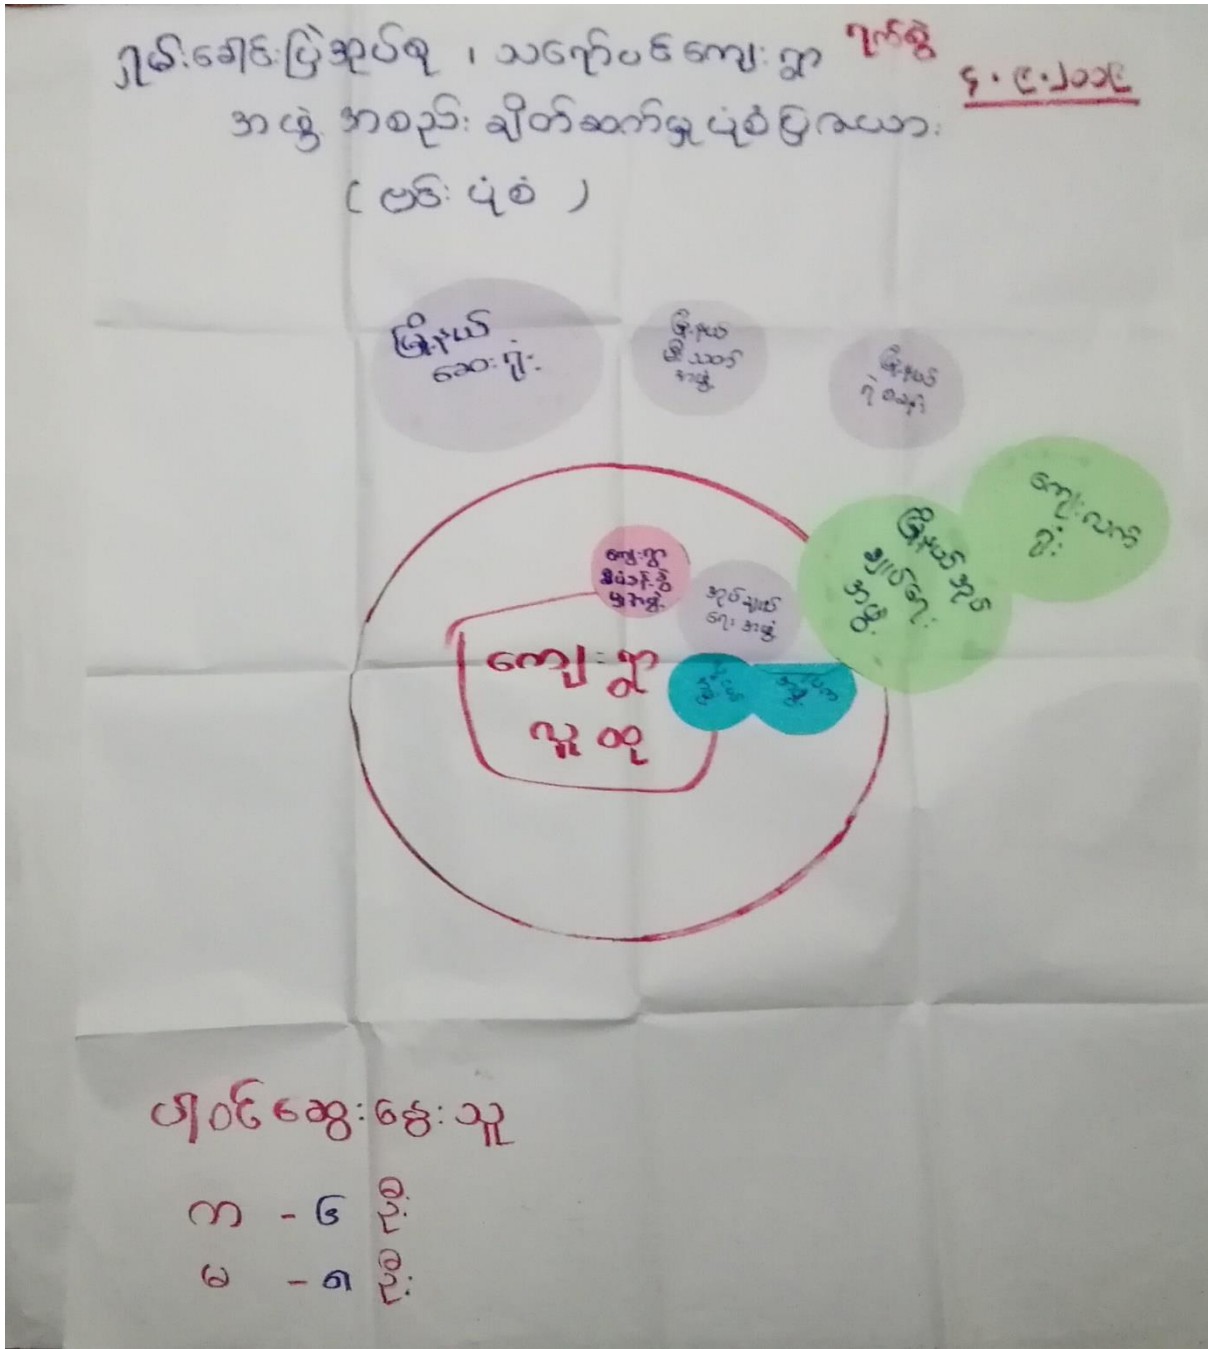 ရှမ်းခေါင်းပြဲအုပ်စု ၊ သရော်ပင်ကျေးရွာ ရက်စွဲ
၄.၉.၂၀၁၉
အဖွဲ့ အစည်း ချိတ်ဆက်မှု ပုံစံပြဇယား
( ဗင်း ပုံစံ )
မြို့နယ်
ဆေးရုံ
မြို့နယ်
မီးသတ်
အဖွဲ့
မြို့နယ်
ရဲစခန်း
ကျေးလက်
ရုံး
မြို့နယ်အုပ်
ချုပ်ရေး
အဖွဲ့
ကျေးရွာ
စီမံခန့်ခွဲ
မှုအဖွဲ့
အုပ်ချုပ်
ရေး အဖွဲ့
ကျေးရွာ
လူထု
ပါဝင်ဆွေးနွေးသူ
ကာ - ၆ ဦး
မ - ၈ ဦး